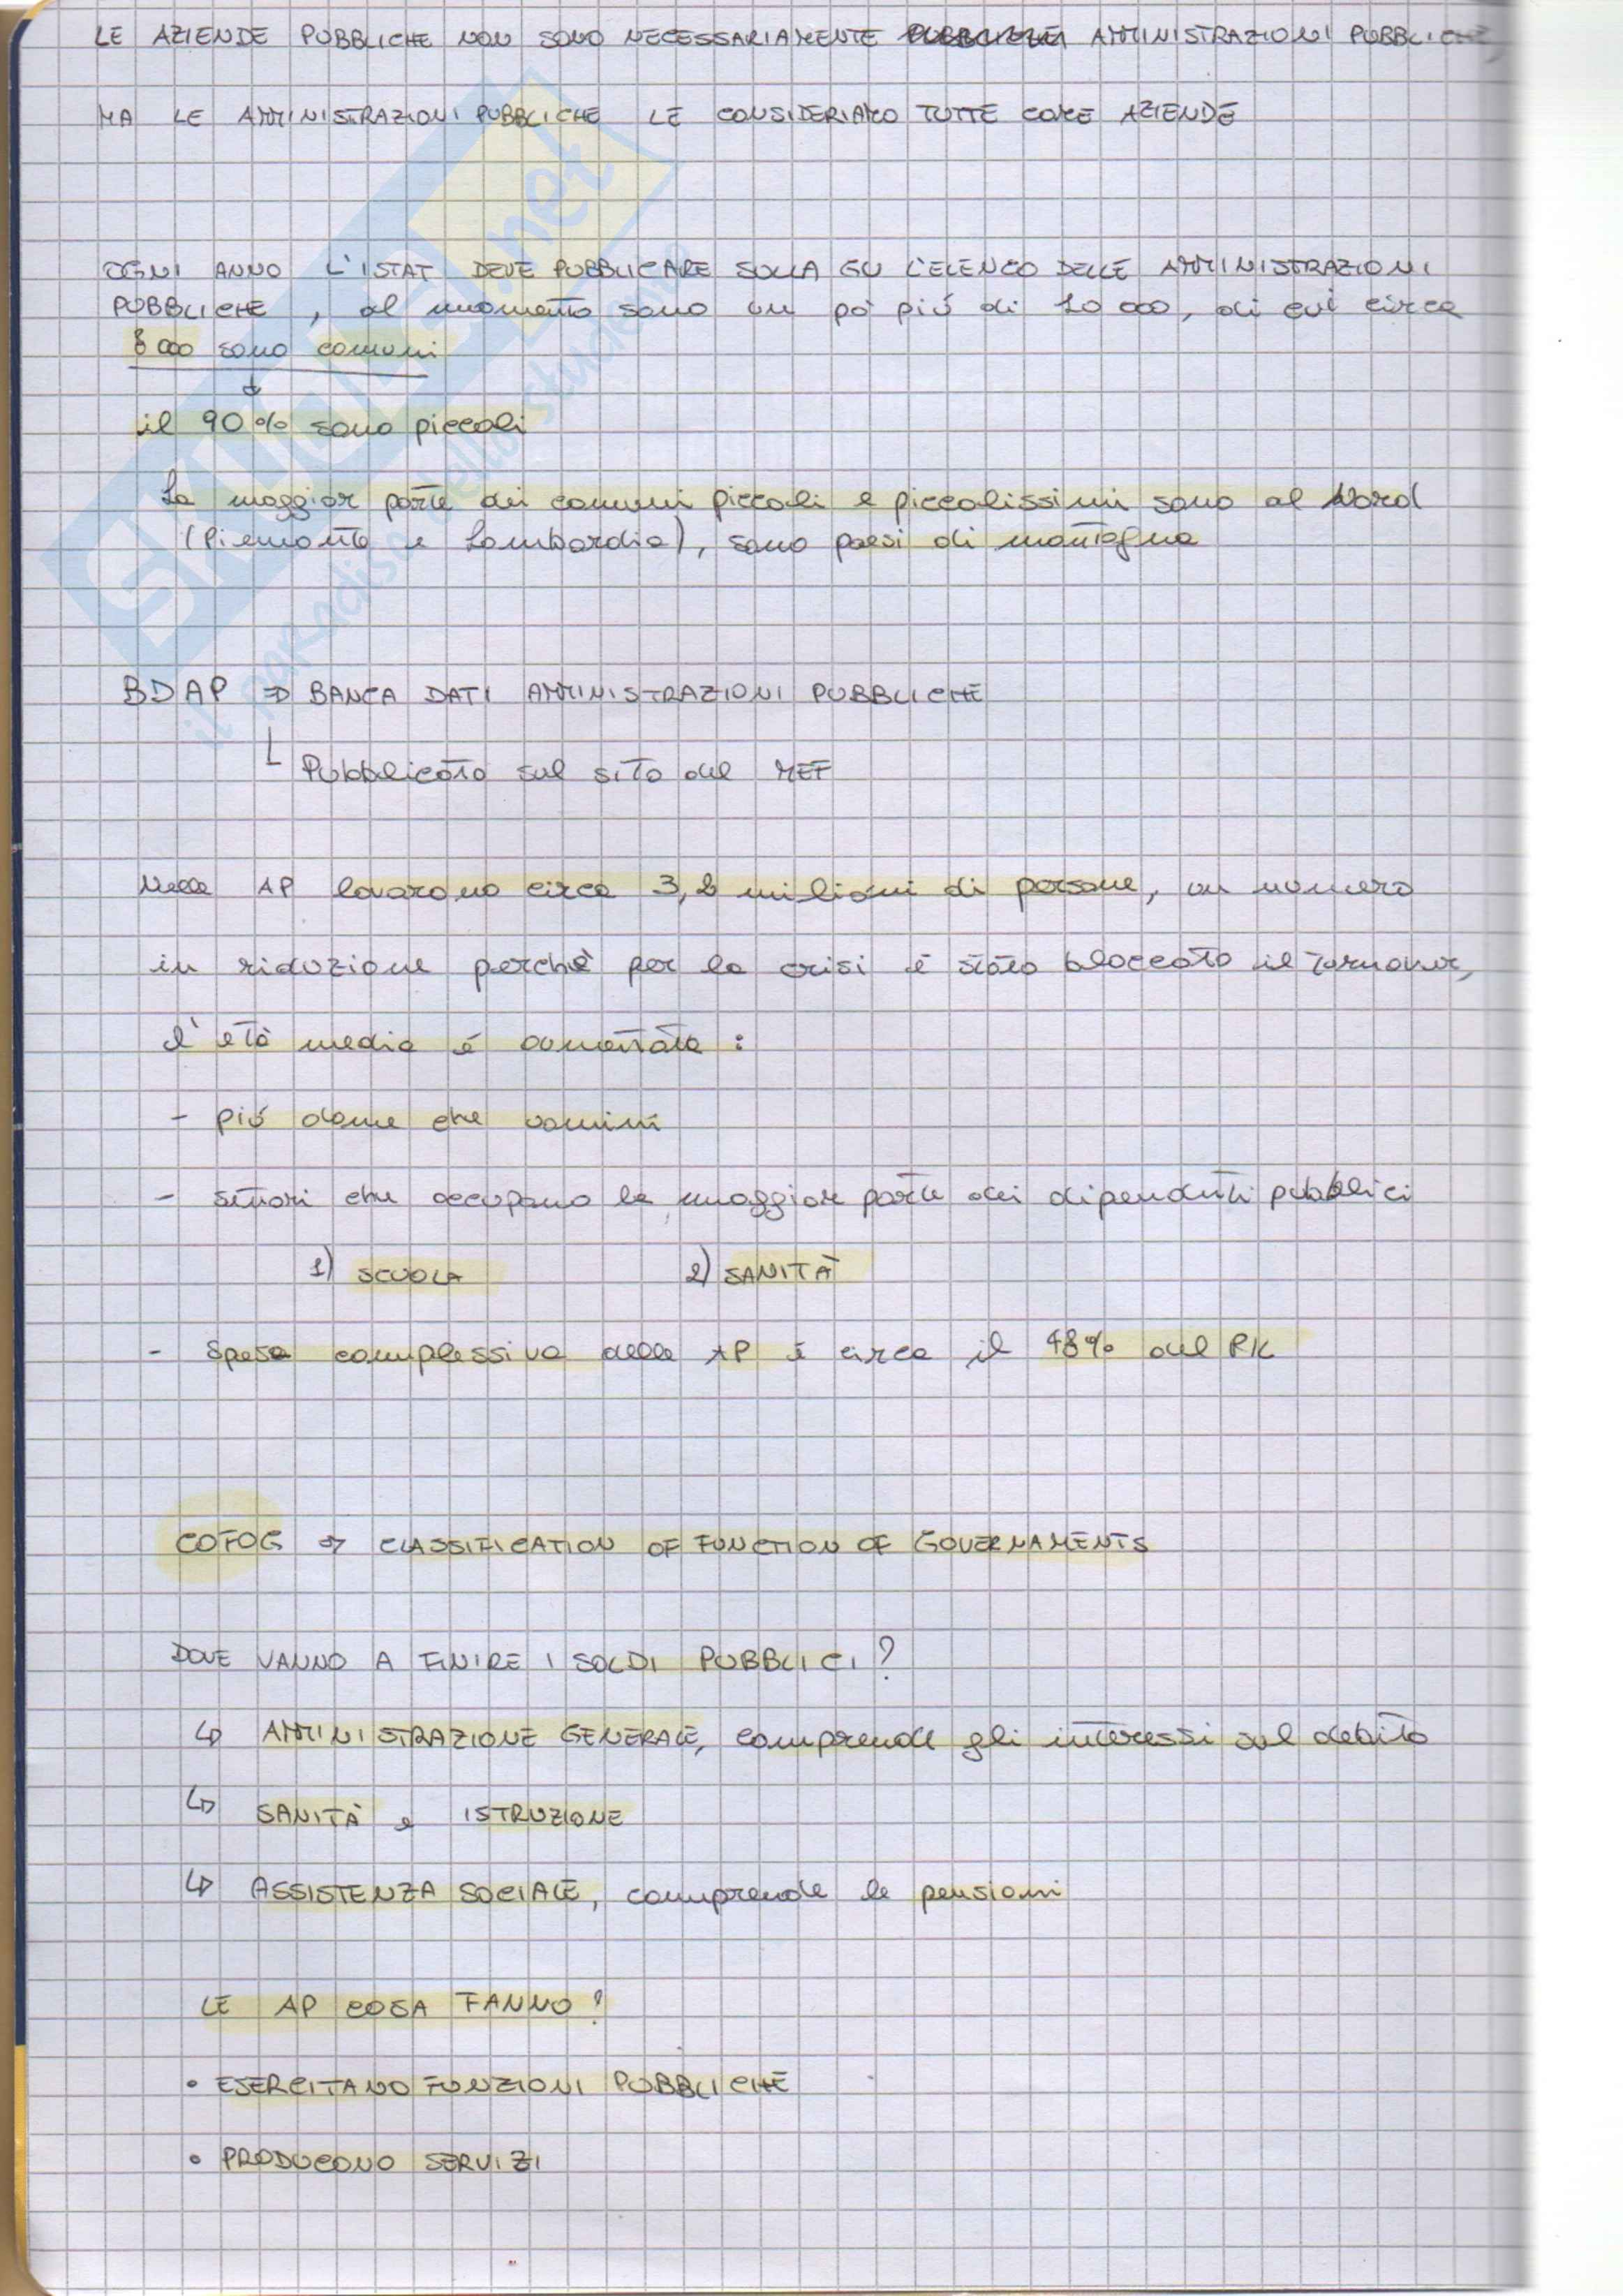 LE AZIENDE PUBBLICHE NON SONO NECESSARIAMENTE AMMINISTRAZIONI PUBBLICHE,
MA LE AMMINISTRAZIONI PUBBLICHE LE CONSIDERIAMO TUTTE COME AZIENDE
OGNI ANNO L'ISTAT DEVE PUBBLICARE SULLA GU L'ELENCO DELLE AMMINISTRAZIONI
PUBBLICHE, al momento sono un pò più di 10 000, di cui circa
8 000 sono comuni
il 90% sono piccoli
La maggior parte dei comuni piccoli e piccolissimi sono al Nord
(Piemonte e Lombardia), sono paesi di montagna
BDAP ⇒ BANCA DATI AMMINISTRAZIONI PUBBLICHE
Pubblicato sul sito del MEF
Nelle AP lavorano circa 3,2 milioni di persone, un numero
in riduzione perchè per la crisi è stato bloccato il turnover,
l'età media è aumentata:
- più donne che uomini
- settori che occupano la maggior parte dei dipendenti pubblici
1) SCUOLA 2) SANITÀ
- Spesa complessiva delle AP è circa il 48% del PIL
COFOG → CLASSIFICATION OF FUNCTION OF GOVERNAMENTS
DOVE VANNO A FINIRE I SOLDI PUBBLICI?
↳ AMMINISTRAZIONE GENERALE, comprende gli interessi sul debito
↳ SANITÀ e ISTRUZIONE
↳ ASSISTENZA SOCIALE, comprende le pensioni
LE AP COSA FANNO?
• ESERCITANO FUNZIONI PUBBLICHE
• PRODUCONO SERVIZI
SKUOLA.net
il paradiso dello studente